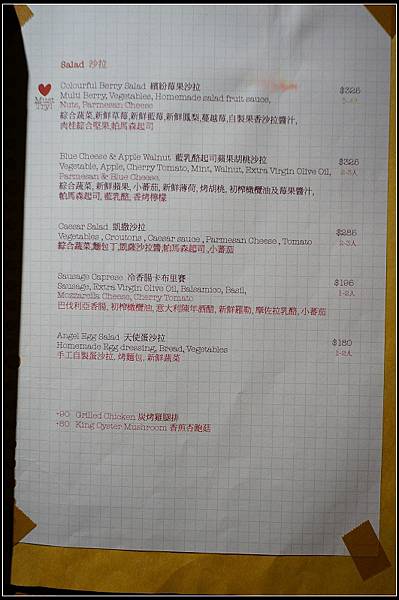 Salad 沙拉
Must Try!
Colourful Berry Salad 繽紛莓果沙拉 $325
Multi Berry, Vegetables, Homemade salad fruit sauce,
Nuts, Parmesan Cheese
綜合蔬菜,新鮮草莓,新鮮藍莓,新鮮鳳梨,蔓越莓,自製果香沙拉醬汁,
肉桂綜合堅果,帕馬森起司
Blue Cheese & Apple Walnut 藍乳酪起司蘋果胡桃沙拉 $325
Vegetable, Apple, Cherry Tomato, Mint, Walnut, Extra Virgin Olive Oil, 2-3人
Parmesan & Blue Cheese.
綜合蔬菜,新鮮蘋果, 小蕃茄, 新鮮薄荷, 烤胡桃, 初榨橄欖油及莓果醬汁,
帕馬森起司, 藍乳酪, 香烤檸檬
Caesar Salad 凱撒沙拉 $285
Vegetables , Croutons , Caesar sauce , Parmesan Cheese , Tomato 2-3人
綜合蔬菜,麵包丁,凱薩沙拉醬,帕馬森起司 ,小蕃茄
Sausage Caprese 冷香腸卡布里賽 $195
Sausage, Extra Virgin Olive Oil, Balsamico, Basil, 1-2人
Mozzarella Cheese, Cherry Tomato
巴伐利亞香腸, 初榨橄欖油, 意大利陳年酒醋, 新鮮羅勒, 摩佐拉乳酪, 小蕃茄
Angel Egg Salad 天使蛋沙拉 $180
Homemade Egg dressing, Bread, Vegetables 1-2人
手工自製蛋沙拉, 烤麵包, 新鮮蔬菜
+90 Grilled Chicken 炭烤雞腿排
+80 King Oyster Mushroom 香煎杏鮑菇